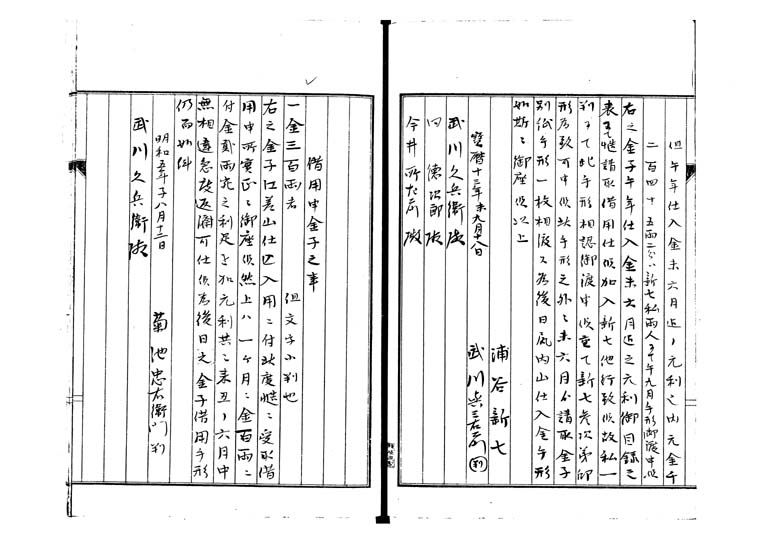 但午年仕入金未六月迄ノ元利之内元金千
二百四十五両二分ハ新七私両人ヨリ午年九月手形御渡申候
右之金子午年仕入金未六月迄之元利御目録之
表ヲ以慥請取借用仕候加入新七他行致候故私一
判ニて此手形相認御渡申候重て新七参次第印
形為致可申候此手形之外ニ未六月分請取金子
別紙手形一枚相渡ス為後日尻内山仕入金手形
如斯ニ御座候以上
宝暦十三年未九月十八日
浦谷新七
武川兵右衛門 判
武川久兵衛殿
同 徳次郎殿
今井所左衛門殿
借用申金子之事
一金三百両者 但文字小判也
右之金子江差山仕込入用ニ付此度慥ニ受取借
用申所実正ニ御座候然上ハ一ケ月ニ金百両ニ
付金弐両宛之利足を加元利共ニ来丑ノ六月中
無相違急度返済可仕候為後日之金子借用手形
仍而如件
明和五年子八月十三日
菊池忠右衛門 判
武川久兵衛殿